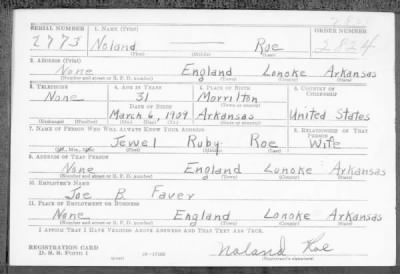 SERIAL NUMBER 1. NAME (Print) ORDER NUMBER
2773 Noland — Roe 2824
(First) (Middle) (Last)
2. ADDRESS (Print)
None England Lonoke Arkansas
(Number and street or R. F. D. number) (Town) (County) (State)
3. TELEPHONE 4. AGE IN YEARS 5. PLACE OF BIRTH 6. COUNTRY OF CITIZENSHIP
None 31 Morrilton
DATE OF BIRTH (Town or county)
March 6, 1909 Arkansas United States
(Exchange) (Number) (Mo.) (Day) (Yr.) (State or country)
7. NAME OF PERSON WHO WILL ALWAYS KNOW YOUR ADDRESS 8. RELATIONSHIP OF THAT PERSON
Jewel Ruby Roe Wife
(Mr., Mrs., Miss) (First) (Middle) (Last)
9. ADDRESS OF THAT PERSON
None England Lonoke Arkansas
(Number and street or R. F. D. number) (Town) (County) (State)
10. EMPLOYER'S NAME
Joe B. Faver
11. PLACE OF EMPLOYMENT OR BUSINESS
None England Lonoke Arkansas
(Number and street or R. F. D. number) (Town) (County) (State)
I AFFIRM THAT I HAVE VERIFIED ABOVE ANSWERS AND THAT THEY ARE TRUE.
REGISTRATION CARD
D. S. S. FORM 1
Noland Roe
(Registrant's signature)